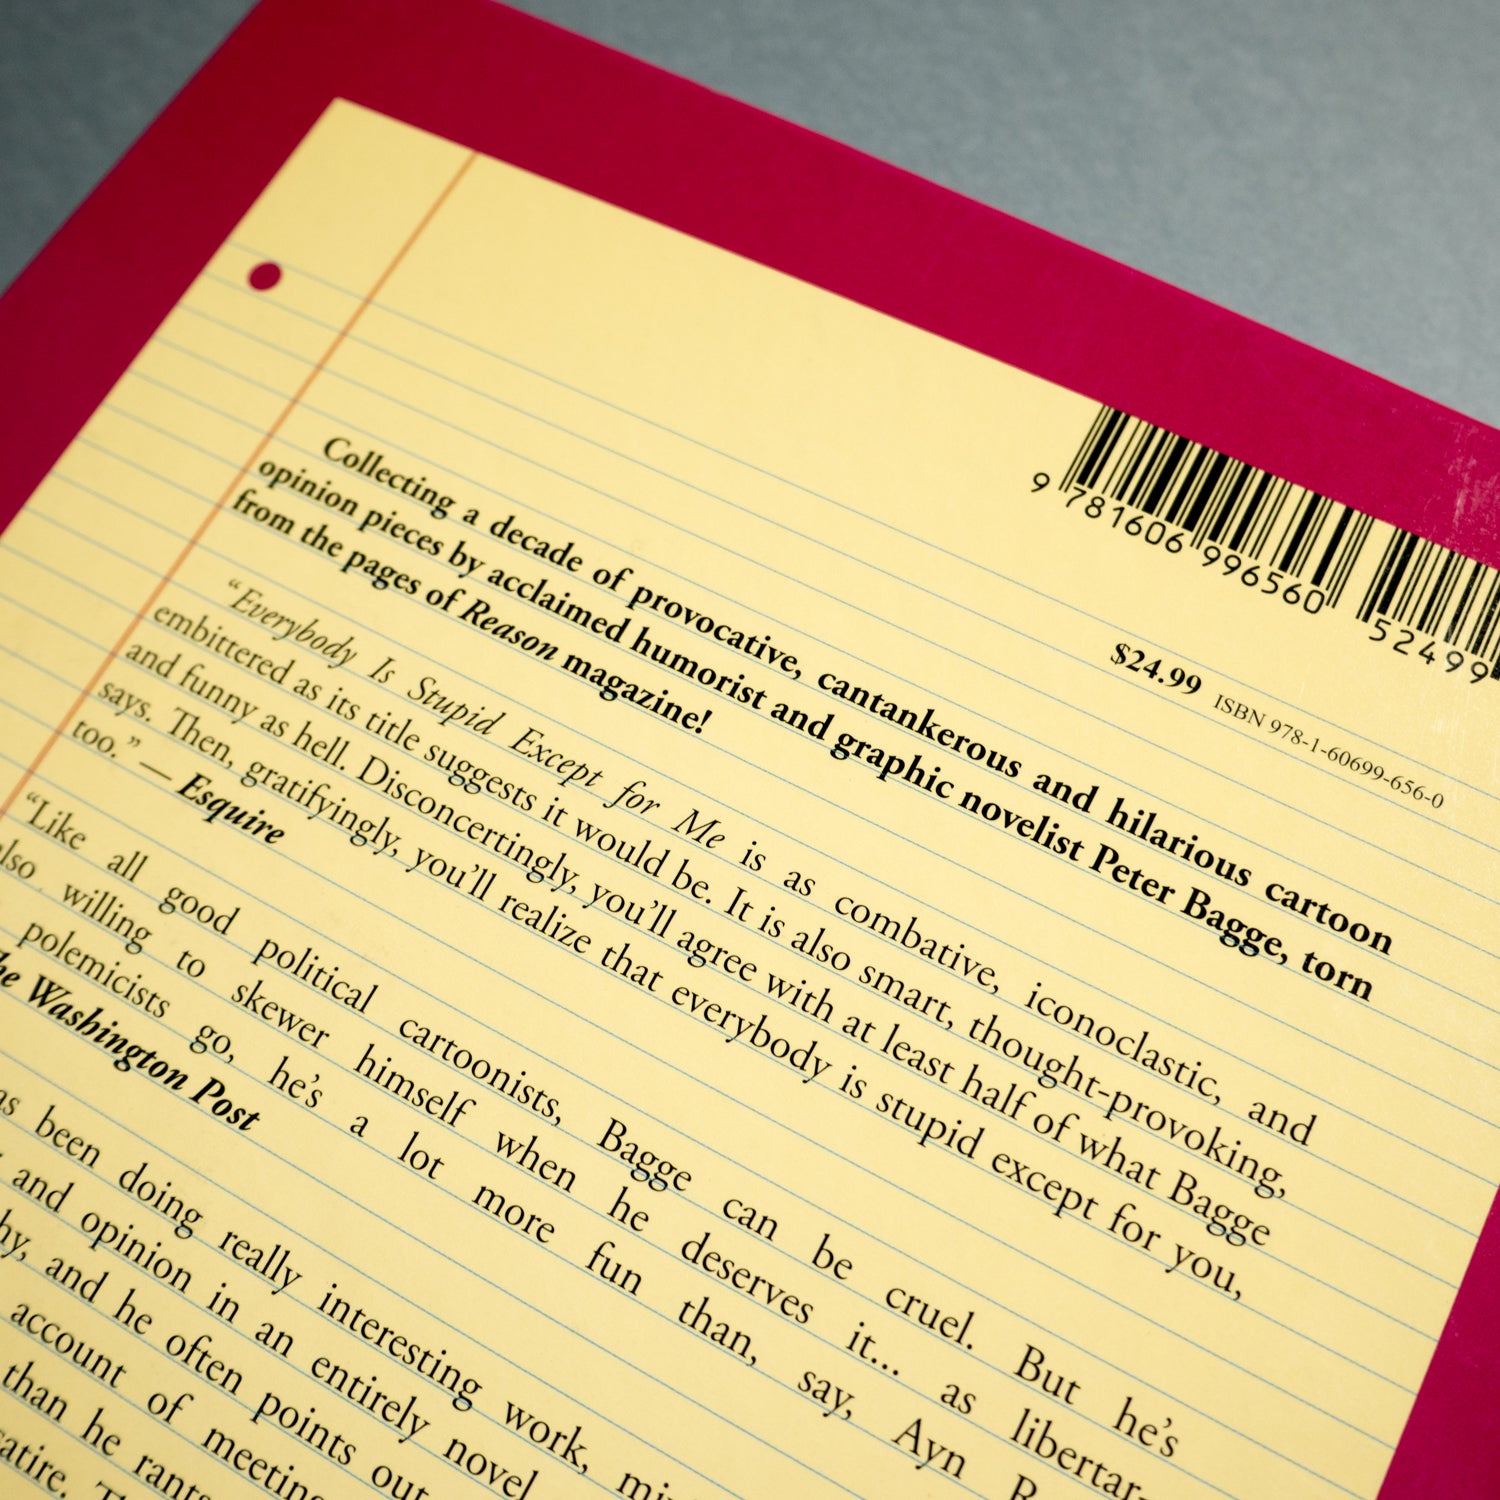 9 781606 996560 52499
$24.99 ISBN 978-1-60699-656-0
Collecting a decade of provocative, cantankerous and hilarious cartoon
opinion pieces by acclaimed humorist and graphic novelist Peter Bagge, torn
from the pages of Reason magazine!
“Everybody Is Stupid Except for Me is as combative, iconoclastic, and
embittered as its title suggests it would be. It is also smart, thought-provoking,
and funny as hell. Disconcertingly, you’ll agree with at least half of what Bagge
says. Then, gratifyingly, you’ll realize that everybody is stupid except for you,
too.” — Esquire
“Like all good political cartoonists, Bagge can be cruel. But he’s
also willing to skewer himself when he deserves it... as libertar-
polemicists go, he’s a lot more fun than, say, Ayn
The Washington Post
been doing really interesting work,
and opinion in an entirely novel
and he often points out
account of
than he rants
satire.